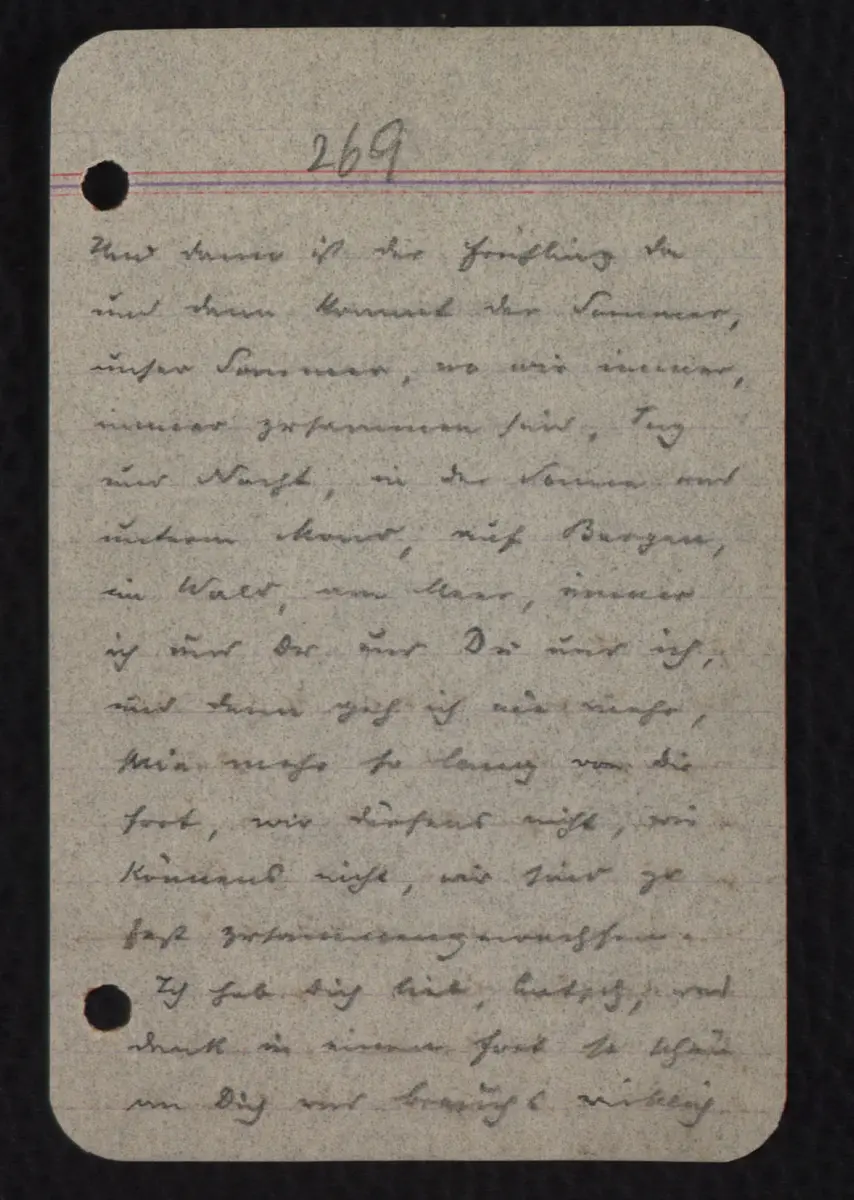 269
Und dann ist der Frühling da
und dann kommt der Sommer,
unser Sommer, wo wir immer,
immer zusammen sind, Tag
und Nacht, in der Sonne und
unterm Mond, auf Bergen,
im Wald, am Meer, immer
ich und Du und Du und ich,
und dann geh ich nie mehr,
nie mehr so lang von Dir
fort, wir dürfens nicht, wir
könnens nicht, wir sind zu
fest zusammengewachsen.
Ich hab Dich lieb, und
denk in einem fort so schön
an Dich und brauchs wirklich